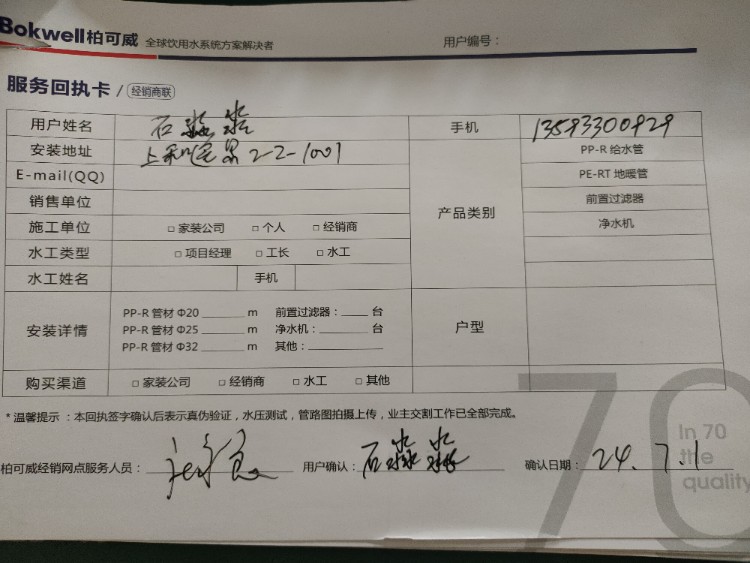 Bokwell柏可威 全球饮用水系统方案解决者 用户编号：
服务回执卡 / 经销商联
用户姓名 石淼淼 手机 13593300929
安装地址 2-2-1001 PP-R 给水管
E-mail(QQ) PE-RT 地暖管
销售单位 产品类别 前置过滤器
施工单位 □ 家装公司 □ 个人 □ 经销商 净水机
水工类型 □ 项目经理 □ 工长 □ 水工
水工姓名 手机
PP-R 管材 Φ20 ______ m 前置过滤器：____ 台
安装详情 PP-R 管材 Φ25 ______ m 净水机：______ 台 户型
PP-R 管材 Φ32 ______ m 其他：__________
购买渠道 □ 家装公司 □ 经销商 □ 水工 □ 其他
* 温馨提示：本回执签字确认后表示真伪验证，水压测试，管路图拍摄上传，业主交割工作已全部完成。
柏可威经销网点服务人员： 用户确认：石淼淼 确认日期：24.7.1
70
In 70
the
quality